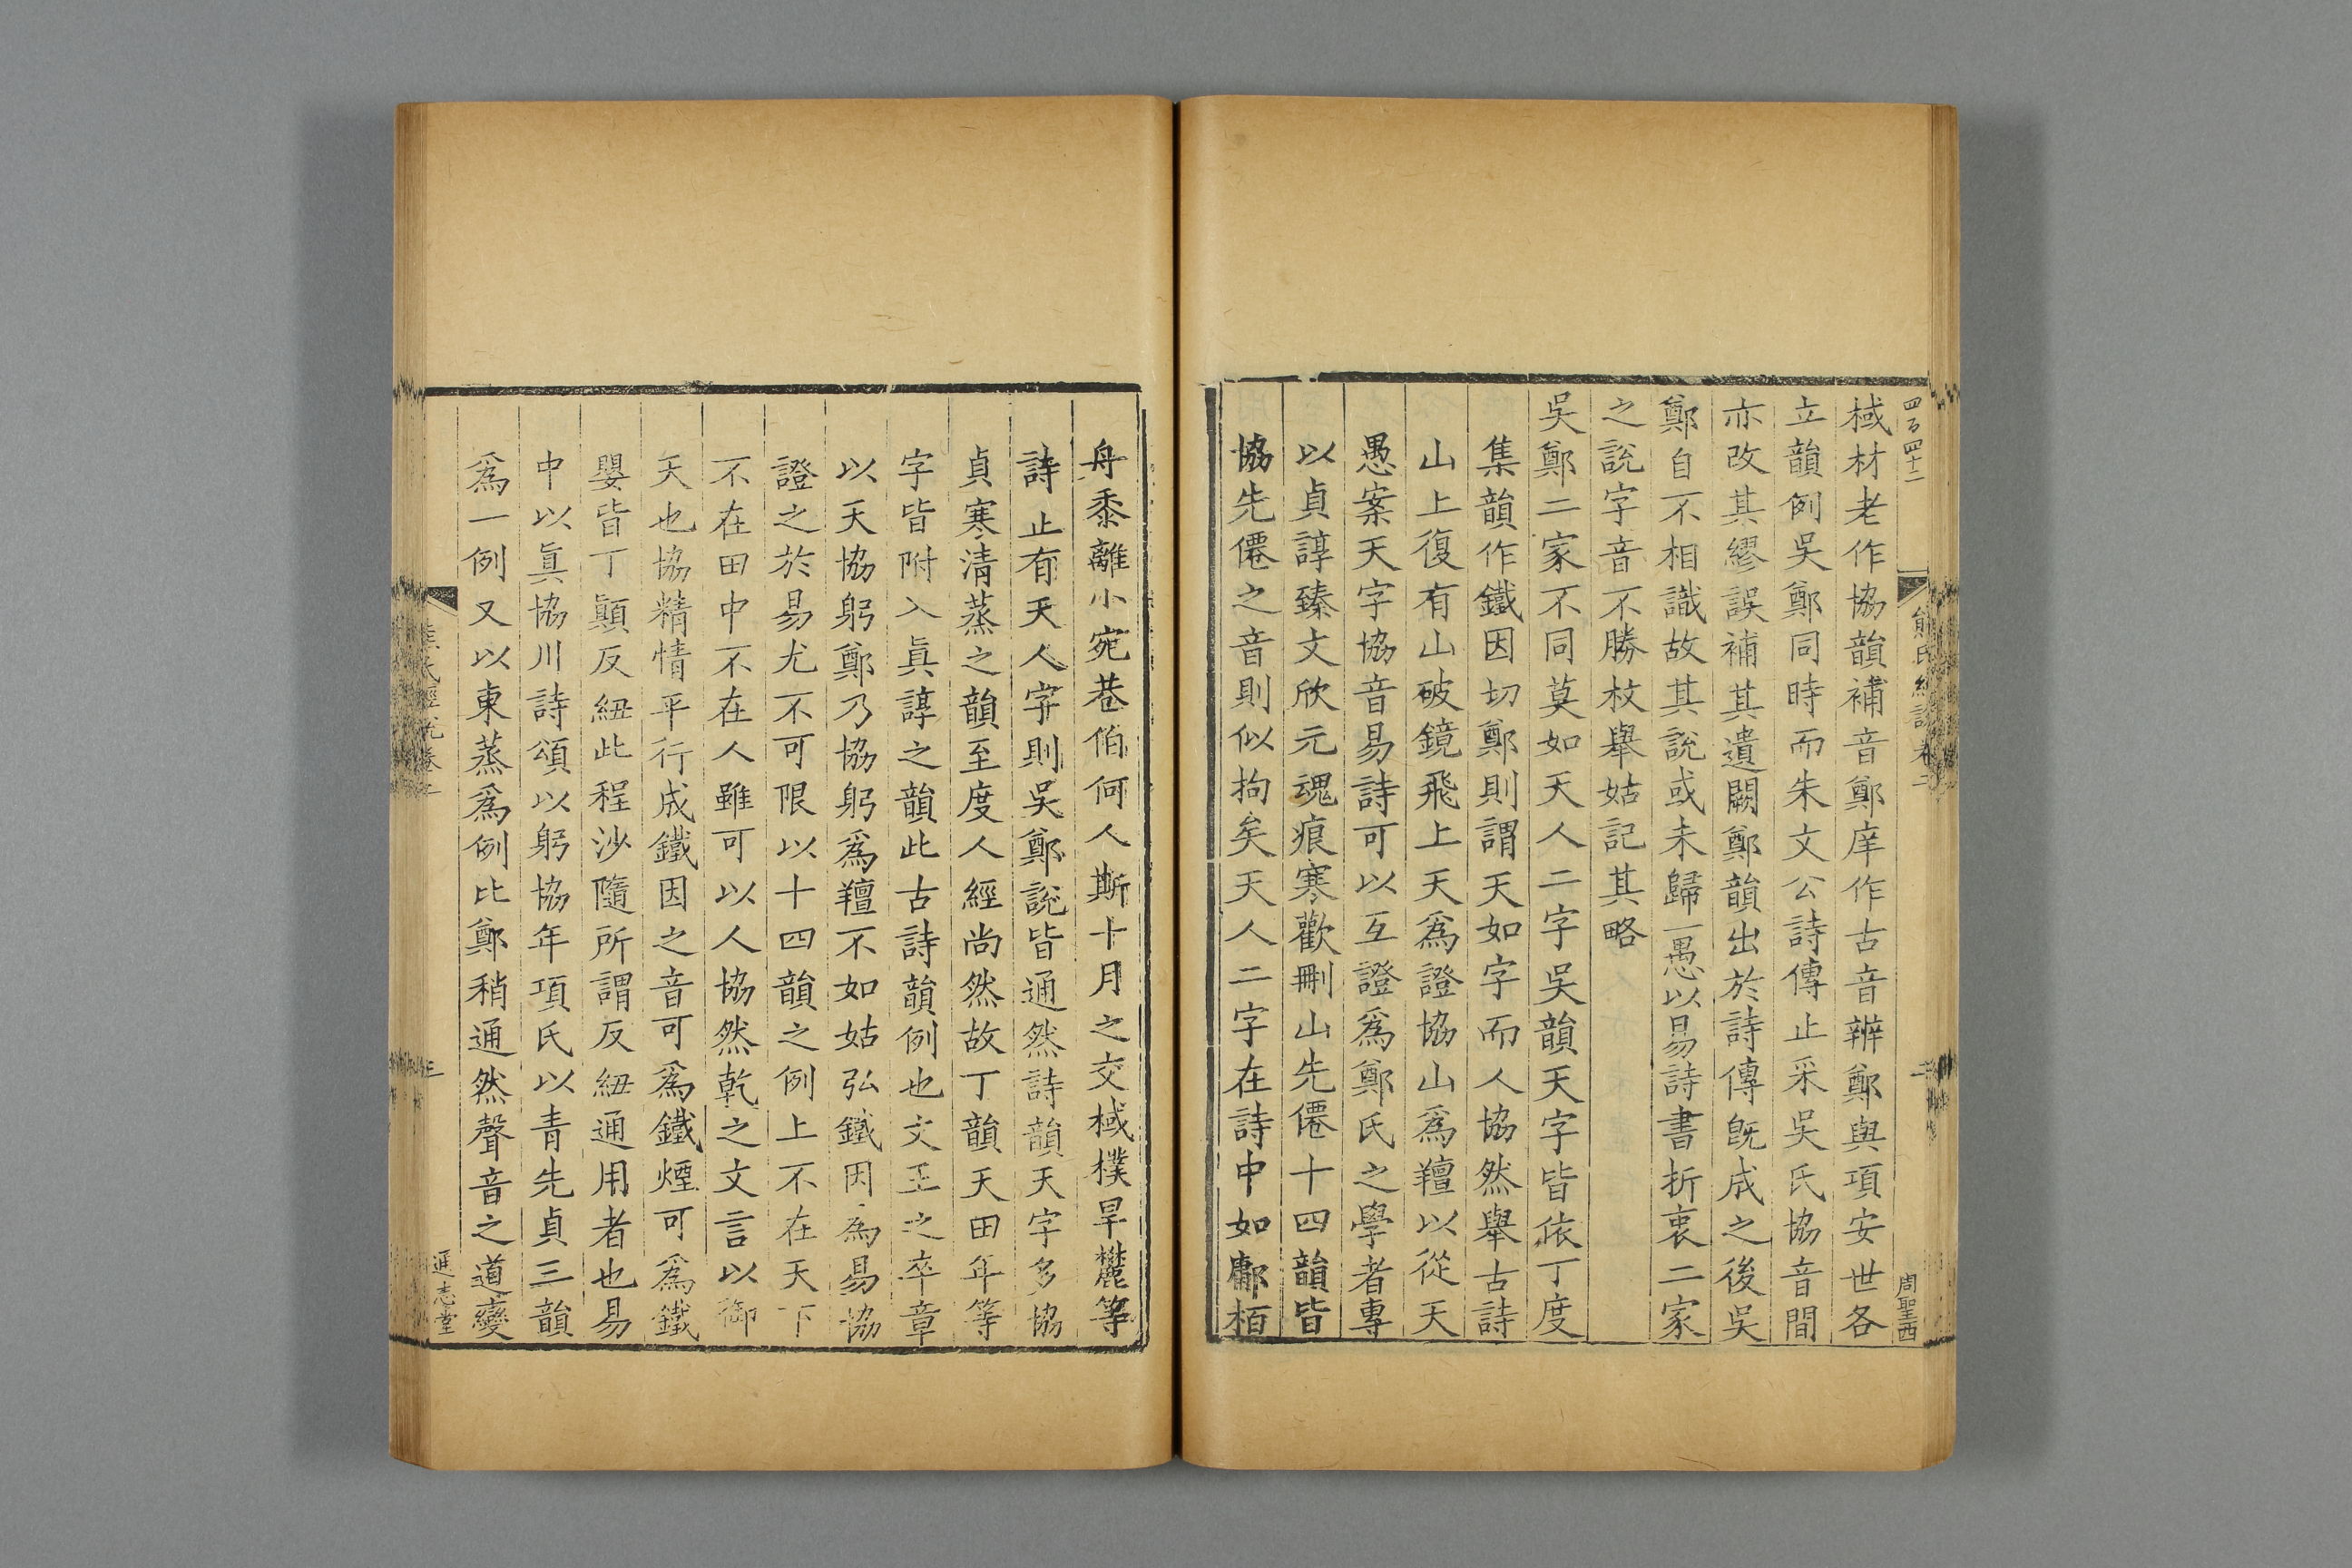 四百四十二
熊氏經說卷二
二
周聖西
棫材老作協韻補音鄭庠作古音辨鄭與項安世各
立韻例吳鄭同時而朱文公詩傳止采吳氏協音間
亦改其繆誤補其遺闕鄭韻出於詩傳旣成之後吳
鄭自不相識故其說或未歸一愚以易詩書折衷二家
之說字音不勝枚舉姑記其略
吳鄭二家不同莫如天人二字吳韻天字皆依丁度
集韻作鐵因切鄭則謂天如字而人協然舉古詩
山上復有山破鏡飛上天爲證協山爲羶以從天
愚案天字協音易詩可以互證爲鄭氏之學者專
以貞諄臻文欣元魂痕寒歡刪山先僊十四韻皆
協先僊之音則似拘矣天人二字在詩中如鄘栢
舟黍離小宛巷伯何人斯十月之交棫樸旱麓等
詩止有天人字則吳鄭說皆通然詩韻天字多協
貞寒清蒸之韻至度人經尚然故丁韻天田年等
字皆附入眞諄之韻此古詩韻例也文王之卒章
以天協躬鄭乃協躬爲羶不如姑弘鐵因爲易協
證之於易尤不可限以十四韻之例上不在天下
不在田中不在人雖可以人協然乾之文言以御
天也協精情平行成鐵因之音可爲鐵煙可爲鐵
嬰皆丁顛反紐此程沙隨所謂反紐通用者也易
中以眞協川詩頌以躬協年項氏以青先貞三韻
爲一例又以東蒸爲例比鄭稍通然聲音之道變
熊氏經說卷二
三
通志堂